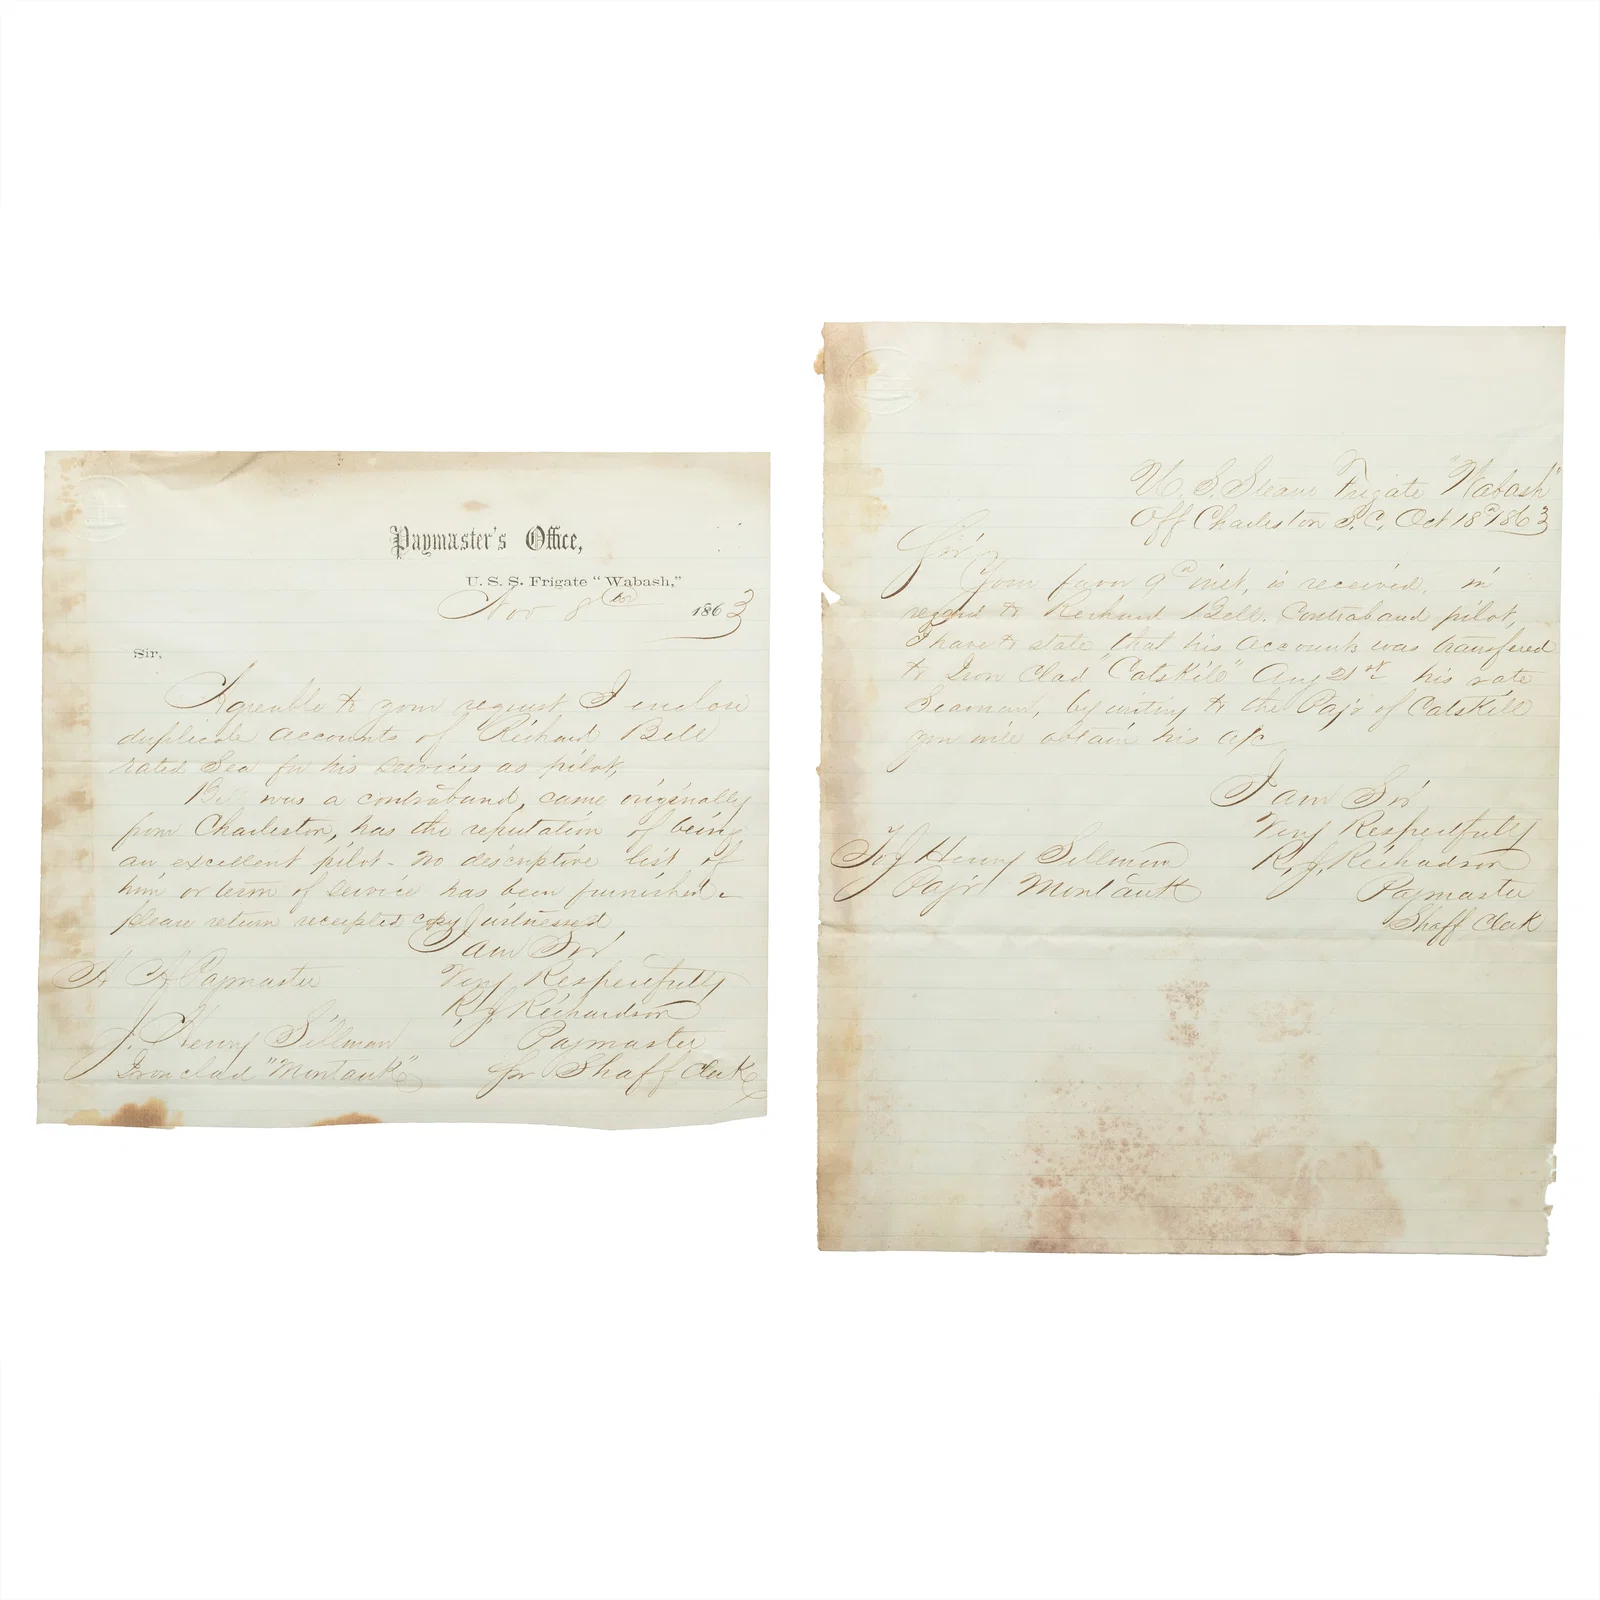 Paymaster's Office,
U. S. S. Frigate "Wabash,"
Nov 8th 1863
Sir,
Agreable to your request I enclose
duplicate accounts of Richard Bell
rated Sea for his services as pilot,
Bell was a contraband, came originally
from Charleston, has the reputation of being
an excellent pilot - No descriptive list of
him or term of service has been furnished -
please return receipted copy witnessed
I am Sir
Very Respectfully
R. J. Richardson
Paymaster
for Shaff Clerk
A A Paymaster
J. Henry Sellman
Iron clad "Montauk"
U. S. Steam Frigate "Wabash"
Off Charleston S. C. Oct 18th 1863
Sir
Your favor 9th inst, is received, in
regard to Richard Bell. Contraband pilot,
I have to state, that his accounts was transfered
to Iron Clad "Catskill" Aug 21st his rate
Seaman, by writing to the Paj'r of Catskill
you will obtain his a/c
I am Sir
Very Respectfully
R. J. Richardson
Paymaster
Shaff Clerk
To J Henry Sellman
Paj'r Montauk